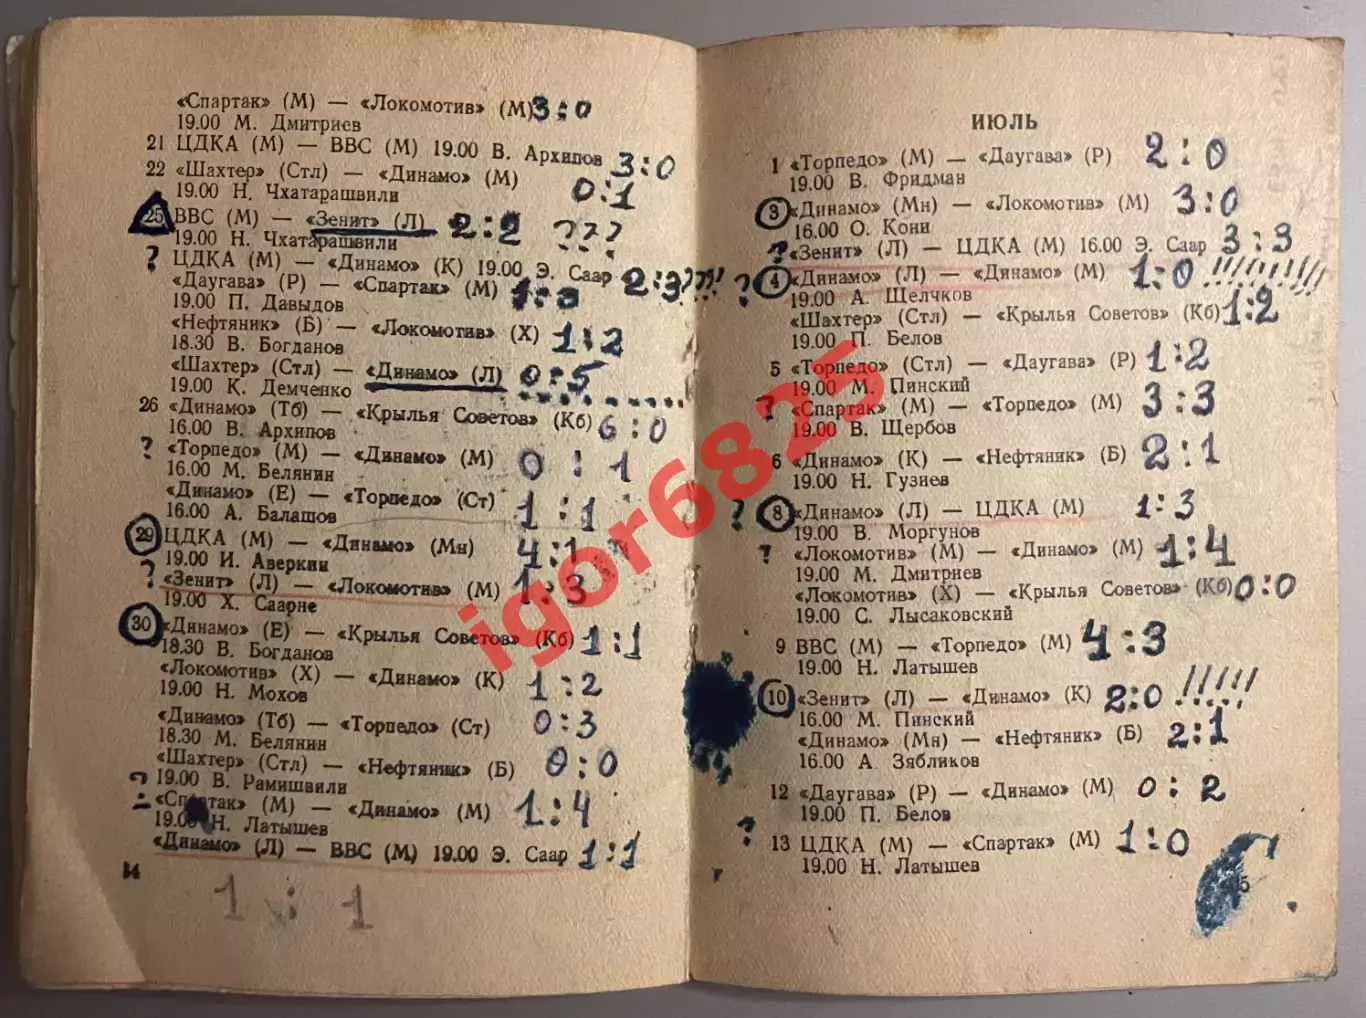 «Спартак» (М) — «Локомотив» (М) 3:0
19.00 М. Дмитриев
21 ЦДКА (М) — ВВС (М) 19.00 В. Архипов 3:0
22 «Шахтер» (Стл) — «Динамо» (М)
19.00 Н. Чхатарашвили 0:1
25 ВВС (М) — «Зенит» (Л) 2:2 ???
19.00 Н. Чхатарашвили
? ЦДКА (М) — «Динамо» (К) 19.00 Э. Саар 2:3
«Даугава» (Р) — «Спартак» (М)
19.00 П. Давыдов
«Нефтяник» (Б) — «Локомотив» (Х) 1:2
18.30 В. Богданов
«Шахтер» (Стл) — «Динамо» (Л) 0:5
19.00 К. Демченко
26 «Динамо» (Тб) — «Крылья Советов» (Кб) 6:0
16.00 В. Архипов
? «Торпедо» (М) — «Динамо» (М) 0:1
16.00 М. Белянин
«Динамо» (Е) — «Торпедо» (Ст) 1:1
16.00 А. Балашов
29 ЦДКА (М) — «Динамо» (Мн) 4:1
19.00 И. Аверкин
? «Зенит» (Л) — «Локомотив» (М) 1:3
19.00 Х. Саарне
30 «Динамо» (Е) — «Крылья Советов» (Кб) 1:1
18.30 В. Богданов
«Локомотив» (Х) — «Динамо» (К) 1:2
19.00 Н. Мохов
«Динамо» (Тб) — «Торпедо» (Ст) 0:3
18.30 М. Белянин
«Шахтер» (Стл) — «Нефтяник» (Б) 0:0
19.00 В. Рамишвили
? «Спартак» (М) — «Динамо» (М) 1:4
19.00 Н. Латышев
«Динамо» (Л) — ВВС (М) 19.00 Э. Саар 1:1
14
1:1
ИЮЛЬ
1 «Торпедо» (М) — «Даугава» (Р) 2:0
19.00 В. Фридман
3 «Динамо» (Мн) — «Локомотив» (М) 3:0
16.00 О. Кони
? «Зенит» (Л) — ЦДКА (М) 16.00 Э. Саар 3:3
? 4 «Динамо» (Л) — «Динамо» (М) 1:0 !!!!!!!
19.00 А. Щелчков
«Шахтер» (Стл) — «Крылья Советов» (Кб) 1:2
19.00 П. Белов
5 «Торпедо» (Стл) — «Даугава» (Р) 1:2
19.00 М. Пинский
? «Спартак» (М) — «Торпедо» (М) 3:3
19.00 В. Щербов
6 «Динамо» (К) — «Нефтяник» (Б) 2:1
19.00 Н. Гузиев
? 8 «Динамо» (Л) — ЦДКА (М) 1:3
19.00 В. Моргунов
? «Локомотив» (М) — «Динамо» (М) 1:4
19.00 М. Дмитриев
«Локомотив» (Х) — «Крылья Советов» (Кб) 0:0
19.00 С. Лысаковский
9 ВВС (М) — «Торпедо» (М) 4:3
19.00 Н. Латышев
10 «Зенит» (Л) — «Динамо» (К) 2:0 !!!!!
16.00 М. Пинский
«Динамо» (Мн) — «Нефтяник» (Б) 2:1
16.00 А. Зябликов
12 «Даугава» (Р) — «Динамо» (М) 0:2
19.00 П. Белов
? 13 ЦДКА (М) — «Спартак» (М) 1:0
19.00 Н. Латышев
igor6825